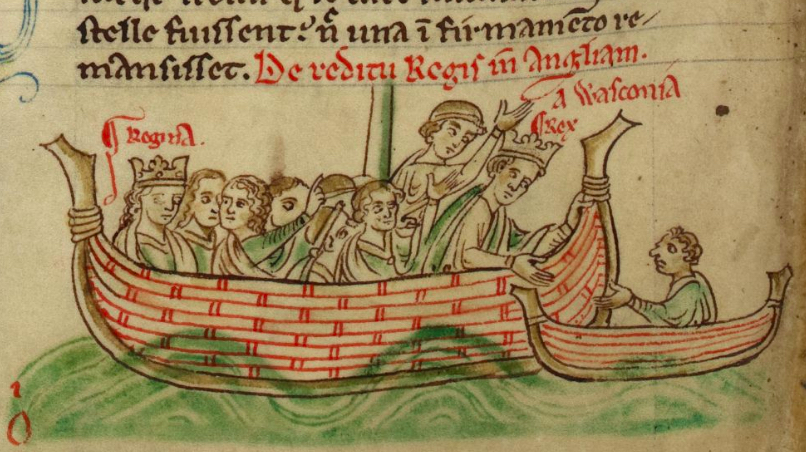 stelle fuissent? ñ una ĩ firmamẽto re/
mansisset. De reditu Regis in Angliam.
a Wasconia
¶ Regina.
¶ Rex